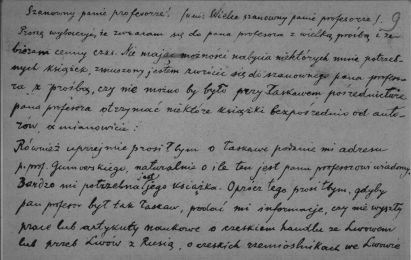 Szanowny panie profesorze! /wzgl. Wielce szanowny panie profesorze/. 9
Proszę wybaczyć, że zwracam się do pana profesora z wielką prośbą i za-
bieram cenny czas. Nie mając możności nabycia niektórych mnie potrzeb-
nych książek, zmuszony jestem zwrócić się do szanownego pana profeso-
ra, z prośbą, czy nie można by było przy łaskawem pośrednictwie
pana profesora otrzymać niektóre książki bezpośrednio od auto-
rów, a mianowicie:
Również uprzejmie prosiłbym o łaskawe podanie mi adresu
p. prof. Gumowskiego, naturalnie o ile ten jest panu profesorowi wiadomy.
Bardzo mi potrzebna jest jego książka. Oprócz tego prosiłbym, gdyby
pan profesor był tak łaskaw, podać mi informacje, czy nie wyszły
prace lub artykuły naukowe o czeskiem handlu ze Lwowem
lub przez Lwów z Rusią, o czeskich rzemieślnikach we Lwowie